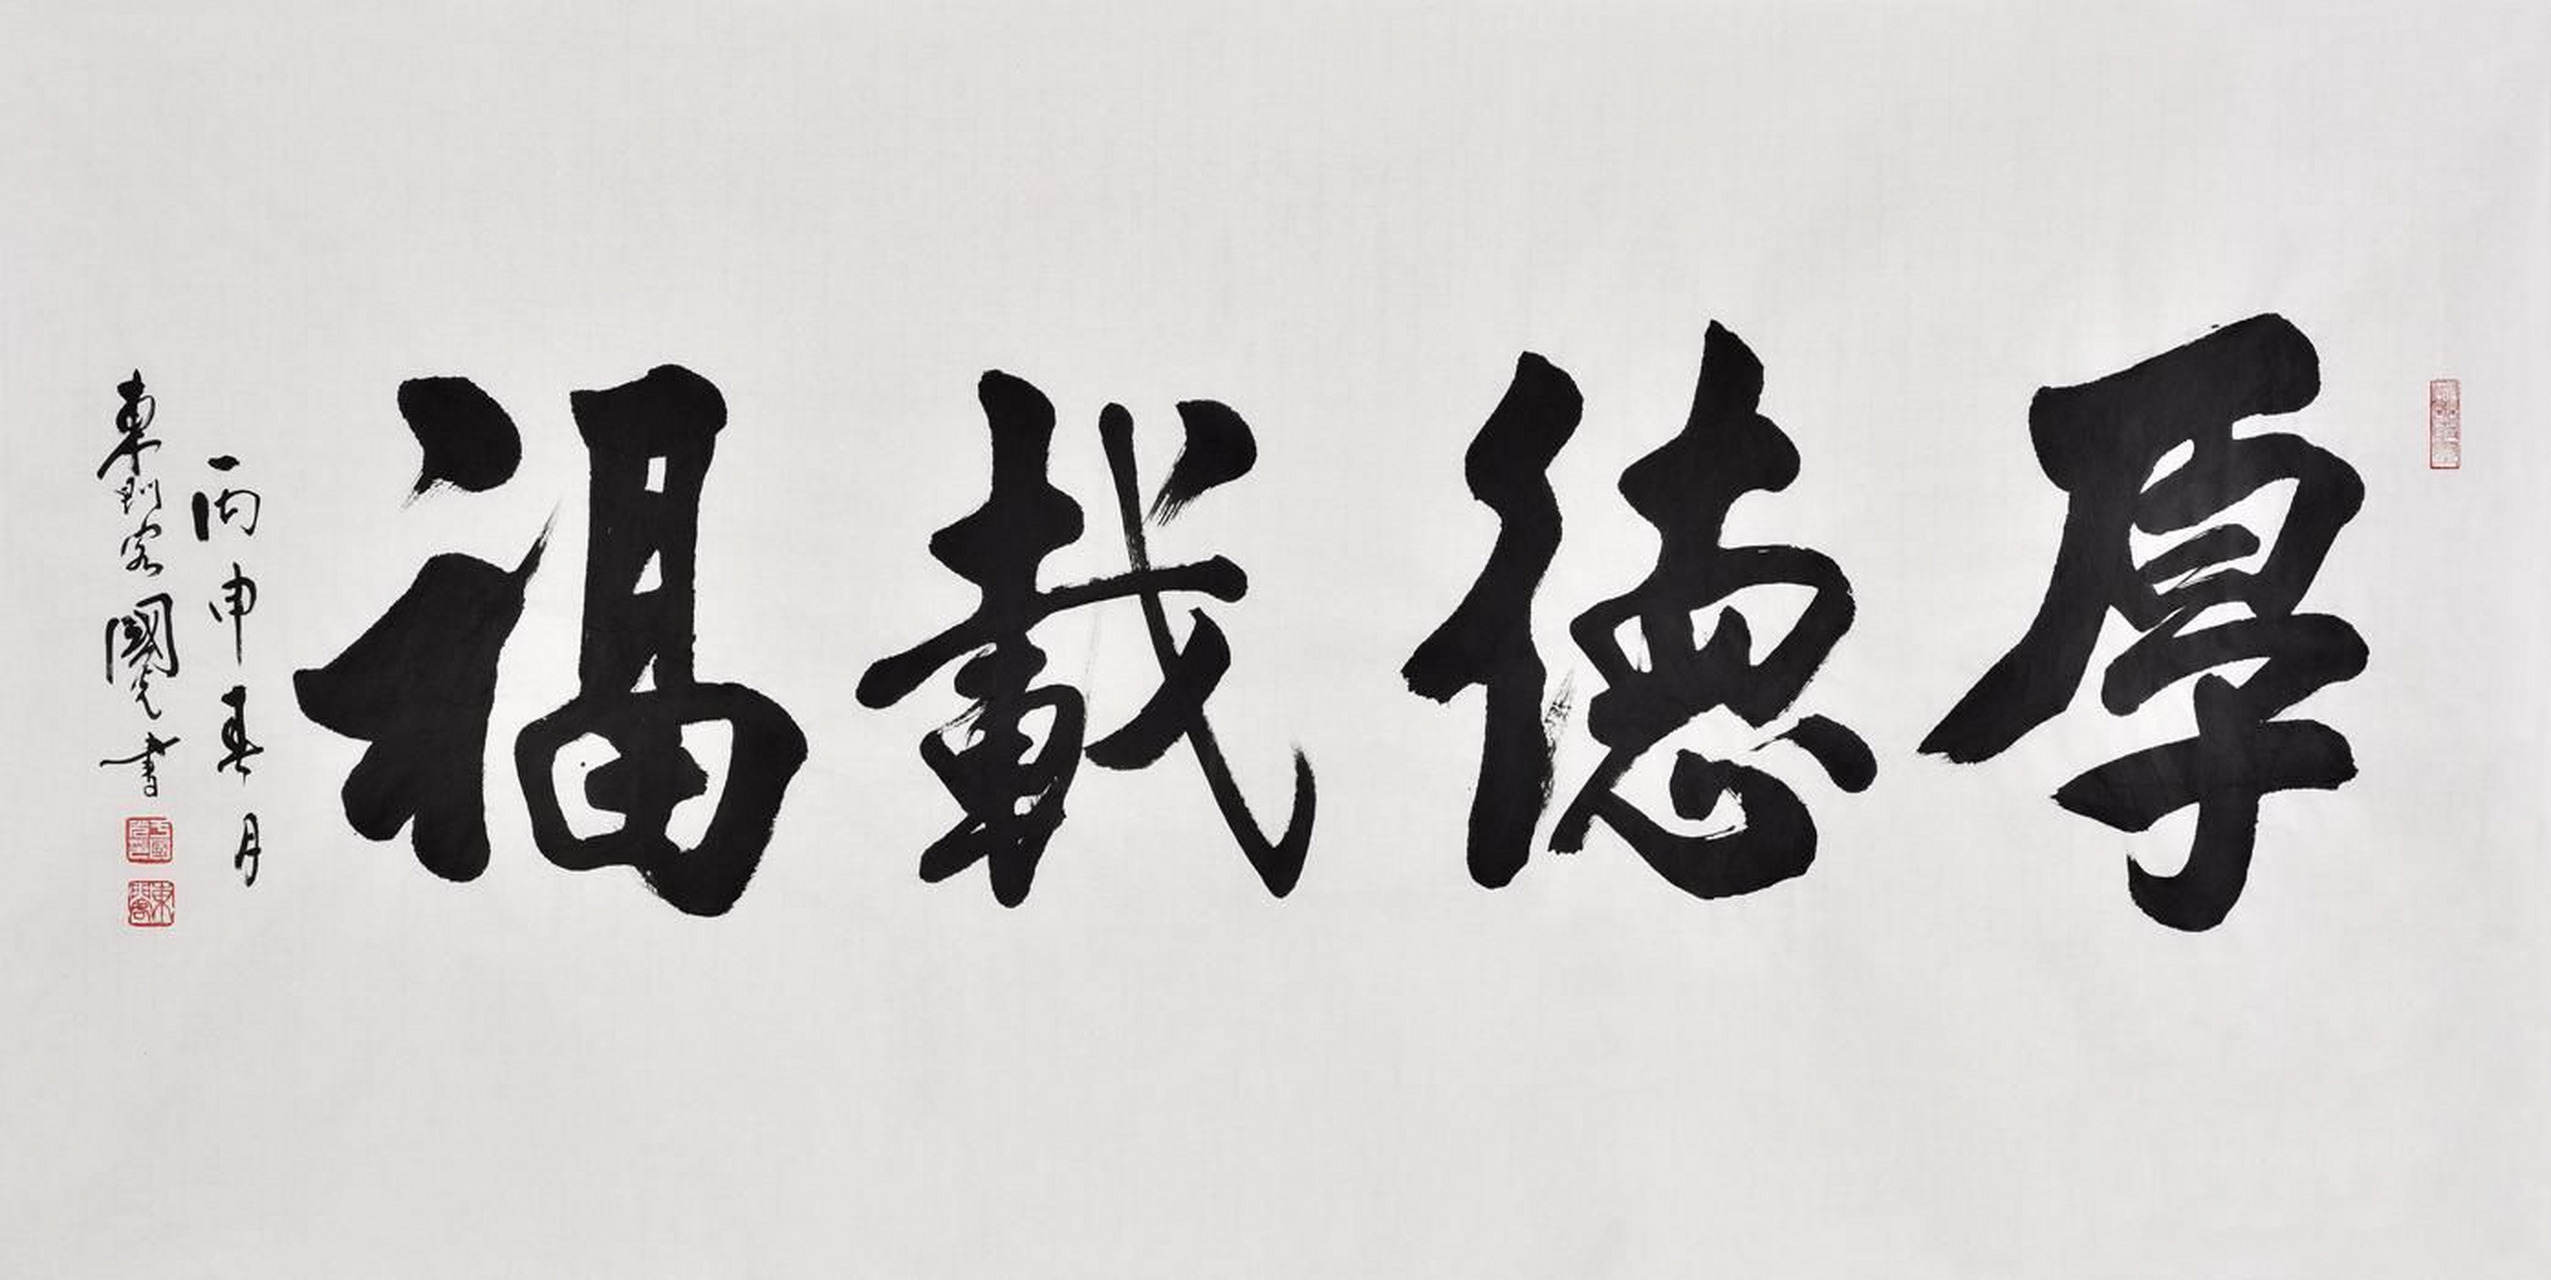 厚德載福
丙申春月
東
客國光書